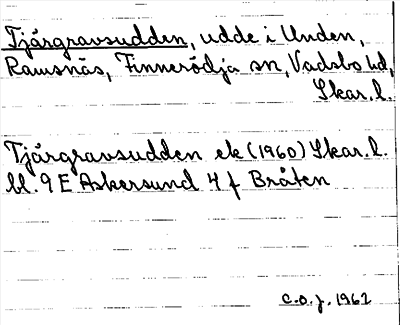 Tjärgravsudden, udde i Unden,
Ramsnäs, Finnerödja sn, Vadsbo hd,
Skar. l.
Tjärgravsudden ek (1960) Skar. l.
bl. 9 E Askersund 4 f Bråten
C.O.J. 1962